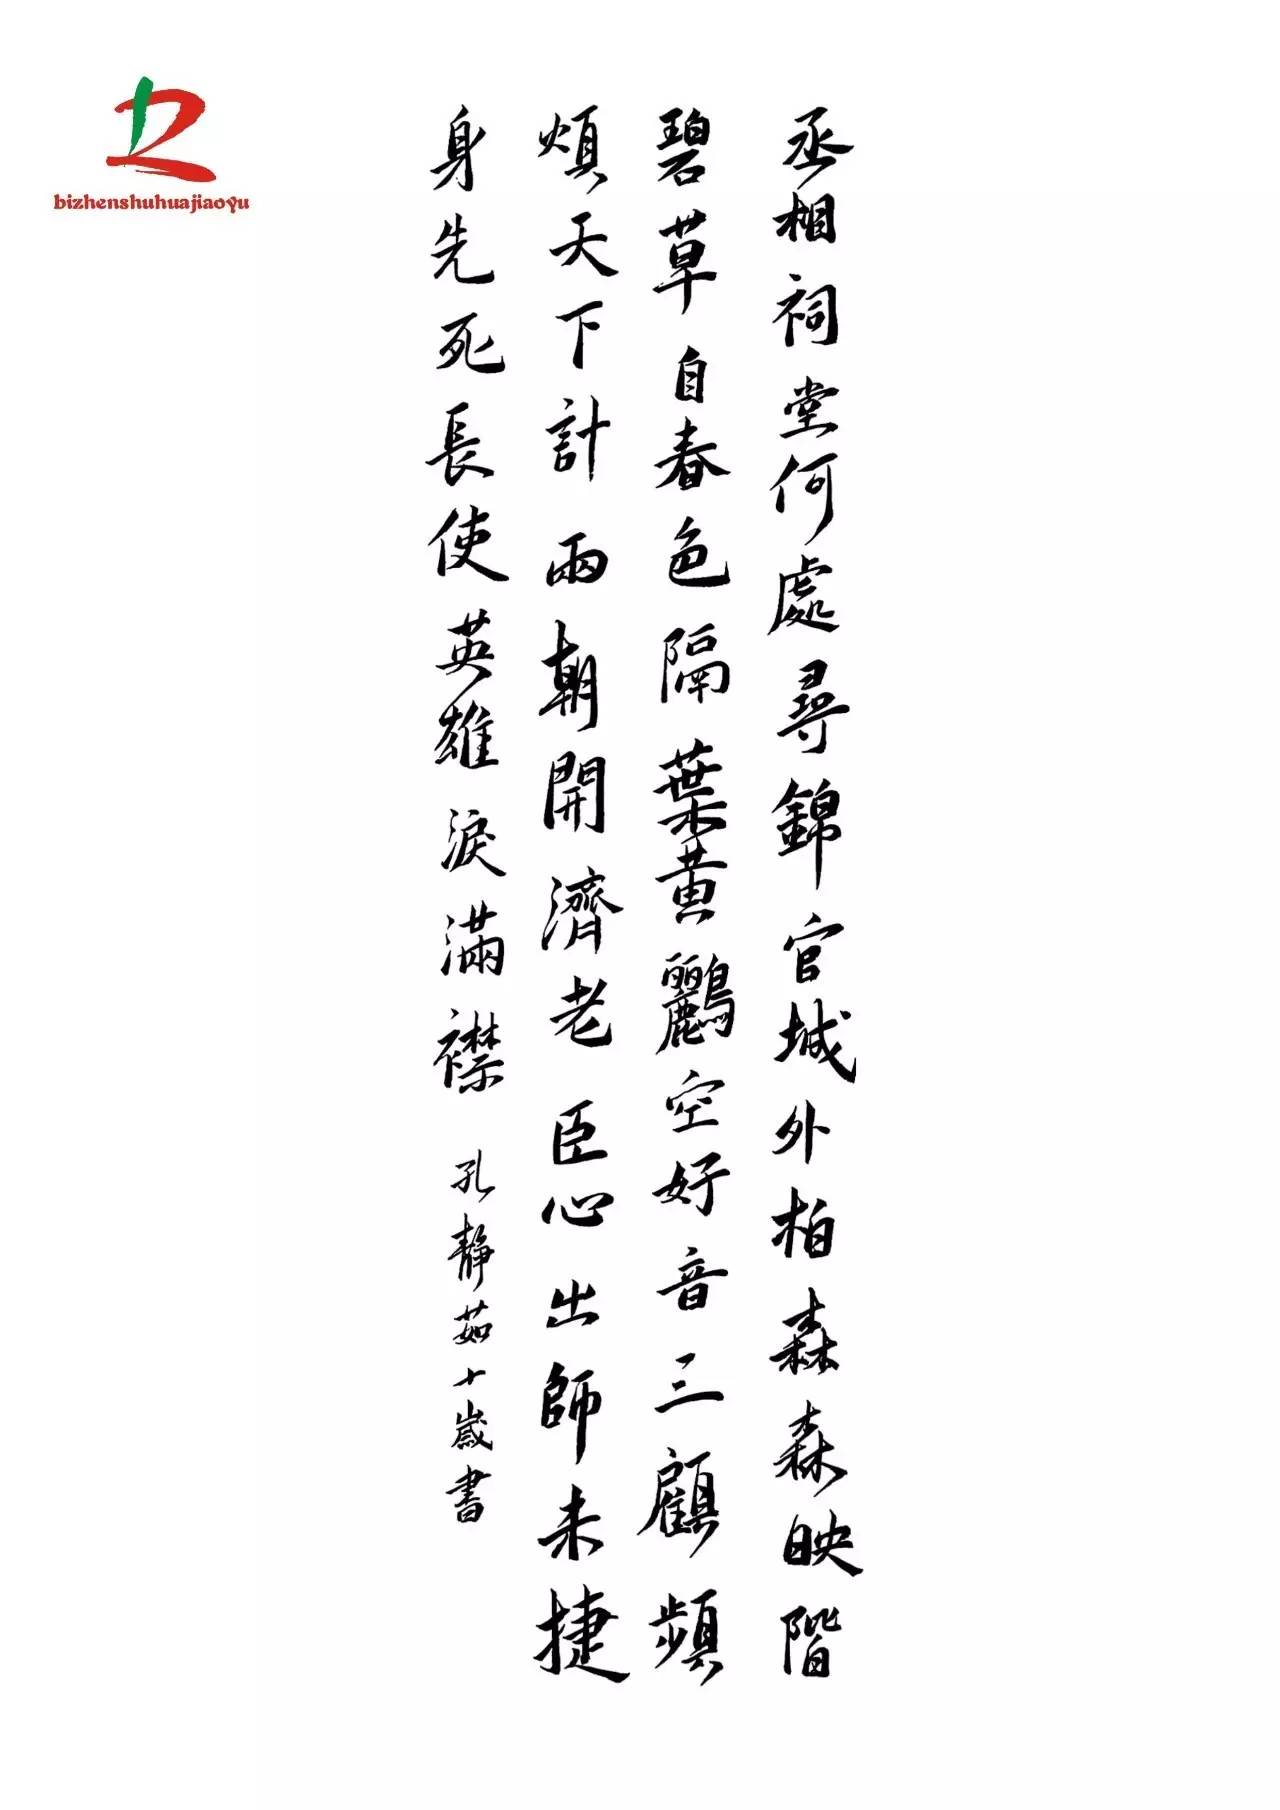 bizhenshuhuajiaoyu
丞相祠堂何處尋錦官城外柏森森映階
碧草自春色隔葉黃鸝空好音三顧頻
煩天下計兩朝開濟老臣心出師未捷
身先死長使英雄淚滿襟
孔靜茹十歲書